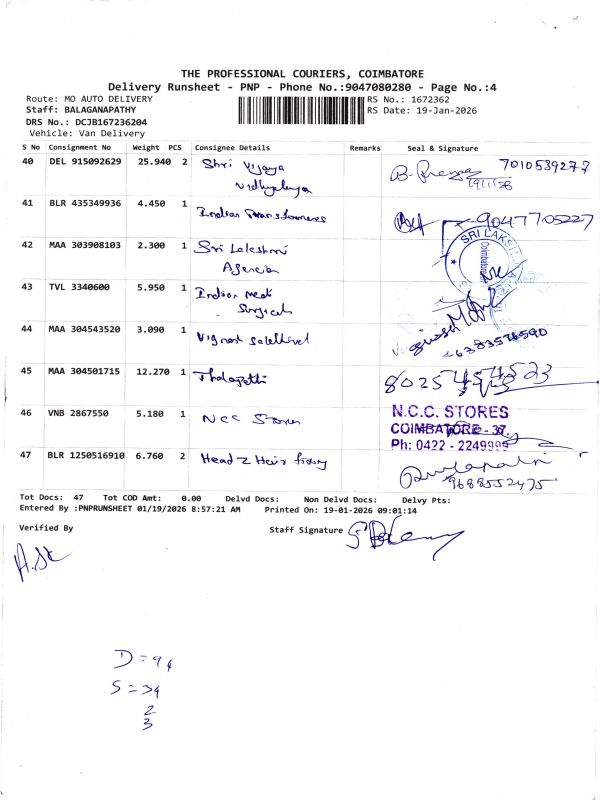 THE PROFESSIONAL COURIERS, COIMBATORE
Delivery Runsheet - PNP - Phone No.:9047080280 - Page No.:4
Route: MO AUTO DELIVERY RS No.: 1672362
Staff: BALAGANAPATHY RS Date: 19-Jan-2026
DRS No.: DCJB167236204
Vehicle: Van Delivery
S No Consignment No Weight PCS Consignee Details Remarks Seal & Signature
40 DEL 915092629 25.940 2 Shri Vijaya
Vidhyalaya
7010539277
19/1/26
41 BLR 435349936 4.450 1 Indian Transformers
9047705227
42 MAA 303908103 2.300 1 Sri Lakshmi
Agencies
SRI LAKSH
Coimbatore
43 TVL 3340600 5.950 1 Indian
Surgicals
44 MAA 304543520 3.090 1 Vignesh
6383576590
45 MAA 304501715 12.270 1 Thalapatti
8025454523
46 VNB 2867550 5.180 1 NCC Stores
N.C.C. STORES
COIMBATORE - 37.
Ph: 0422 - 2249999
47 BLR 1250516910 6.760 2 Head 2 Hair
9688552475
Tot Docs: 47 Tot COD Amt: 0.00 Delvd Docs: Non Delvd Docs: Delvy Pts:
Entered By :PNPRUNSHEET 01/19/2026 8:57:21 AM Printed On: 19-01-2026 09:01:14
Verified By Staff Signature
D = 94
S = 34
2
3